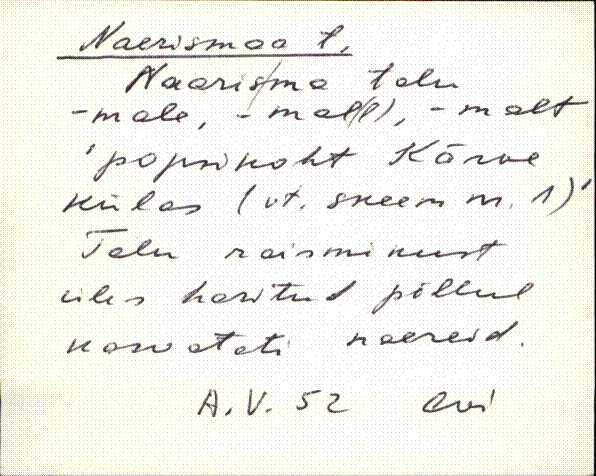 Naerismaa t.
Naaris/ma talu
-male, -mal(l), -malt
'popsikoht Kärve
külas (vt. skeem nr. 1)'
Talu raismikust
üles haritud põllul
kasvatati naereid.
A. V. 52 Avi